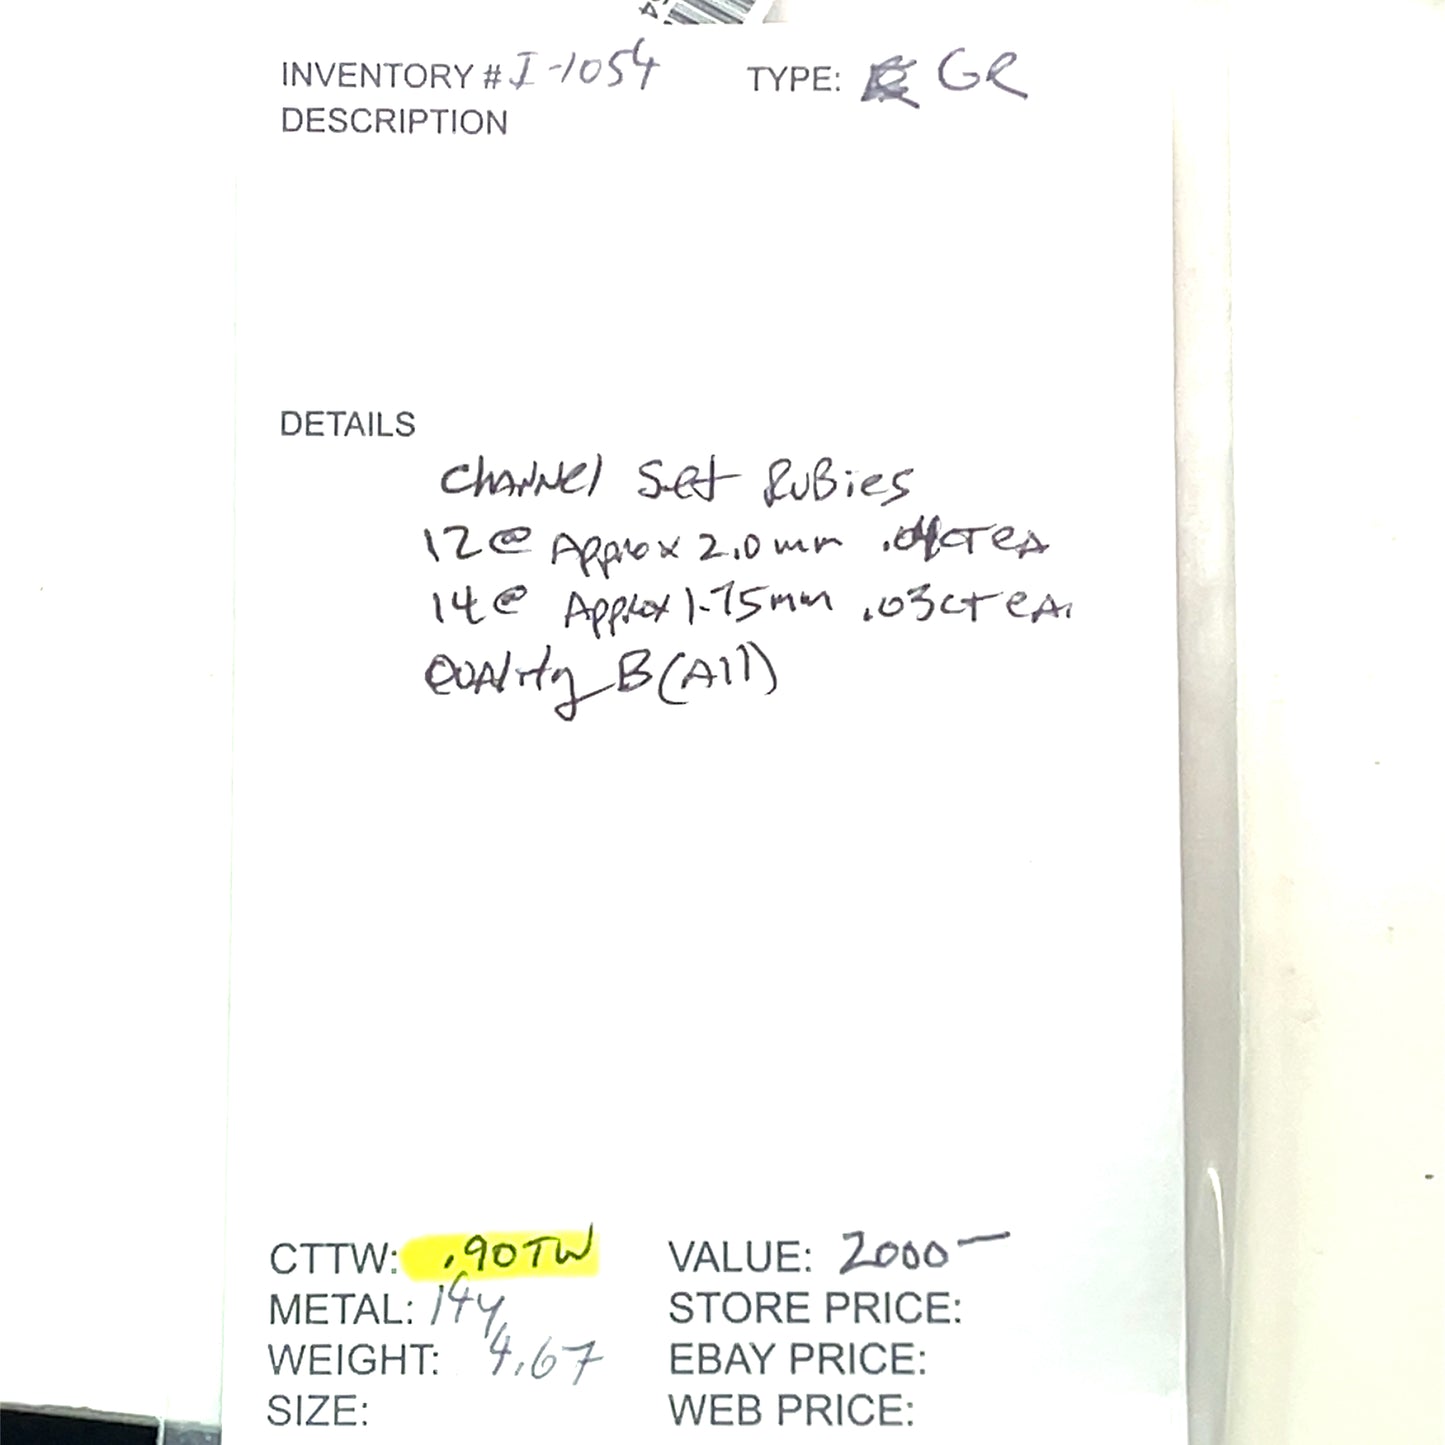 INVENTORY # I-1054 TYPE: GR
DESCRIPTION
DETAILS
Channel Set Rubies
12 @ Approx 2.0mm .04CT eA
14 @ Approx 1.75mm .03CT eA.
Quality B (All)
CTTW: .90TW VALUE: 2000—
METAL: 14y STORE PRICE:
WEIGHT: 4.67 EBAY PRICE:
SIZE: WEB PRICE: